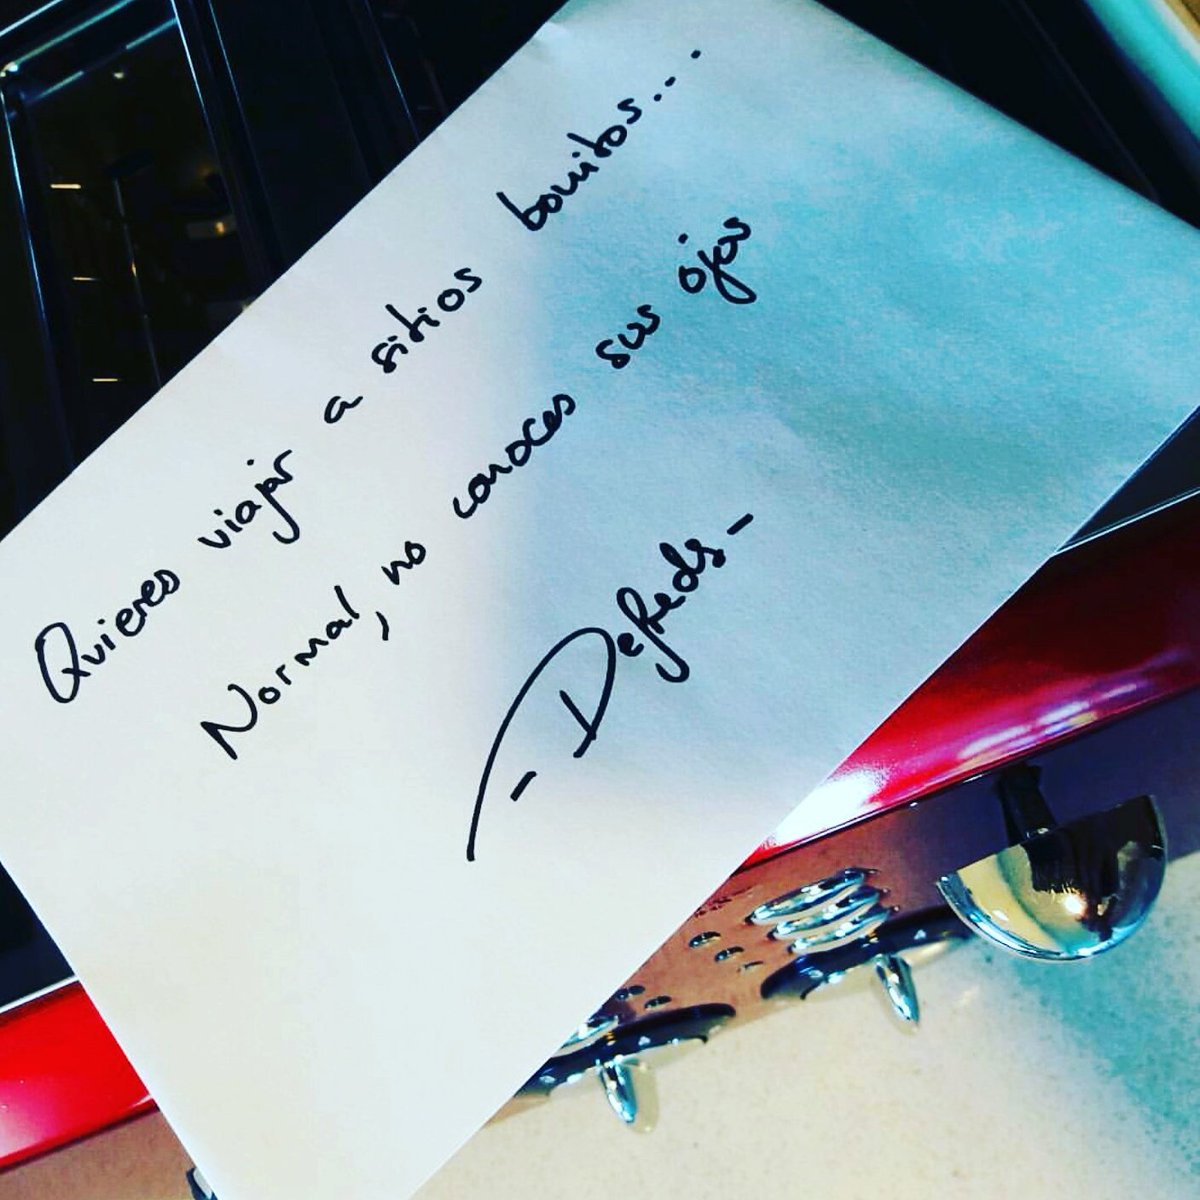 Quieres viajar a sitios bonitos...
Normal, no conoces sus ojos
-Defreds-